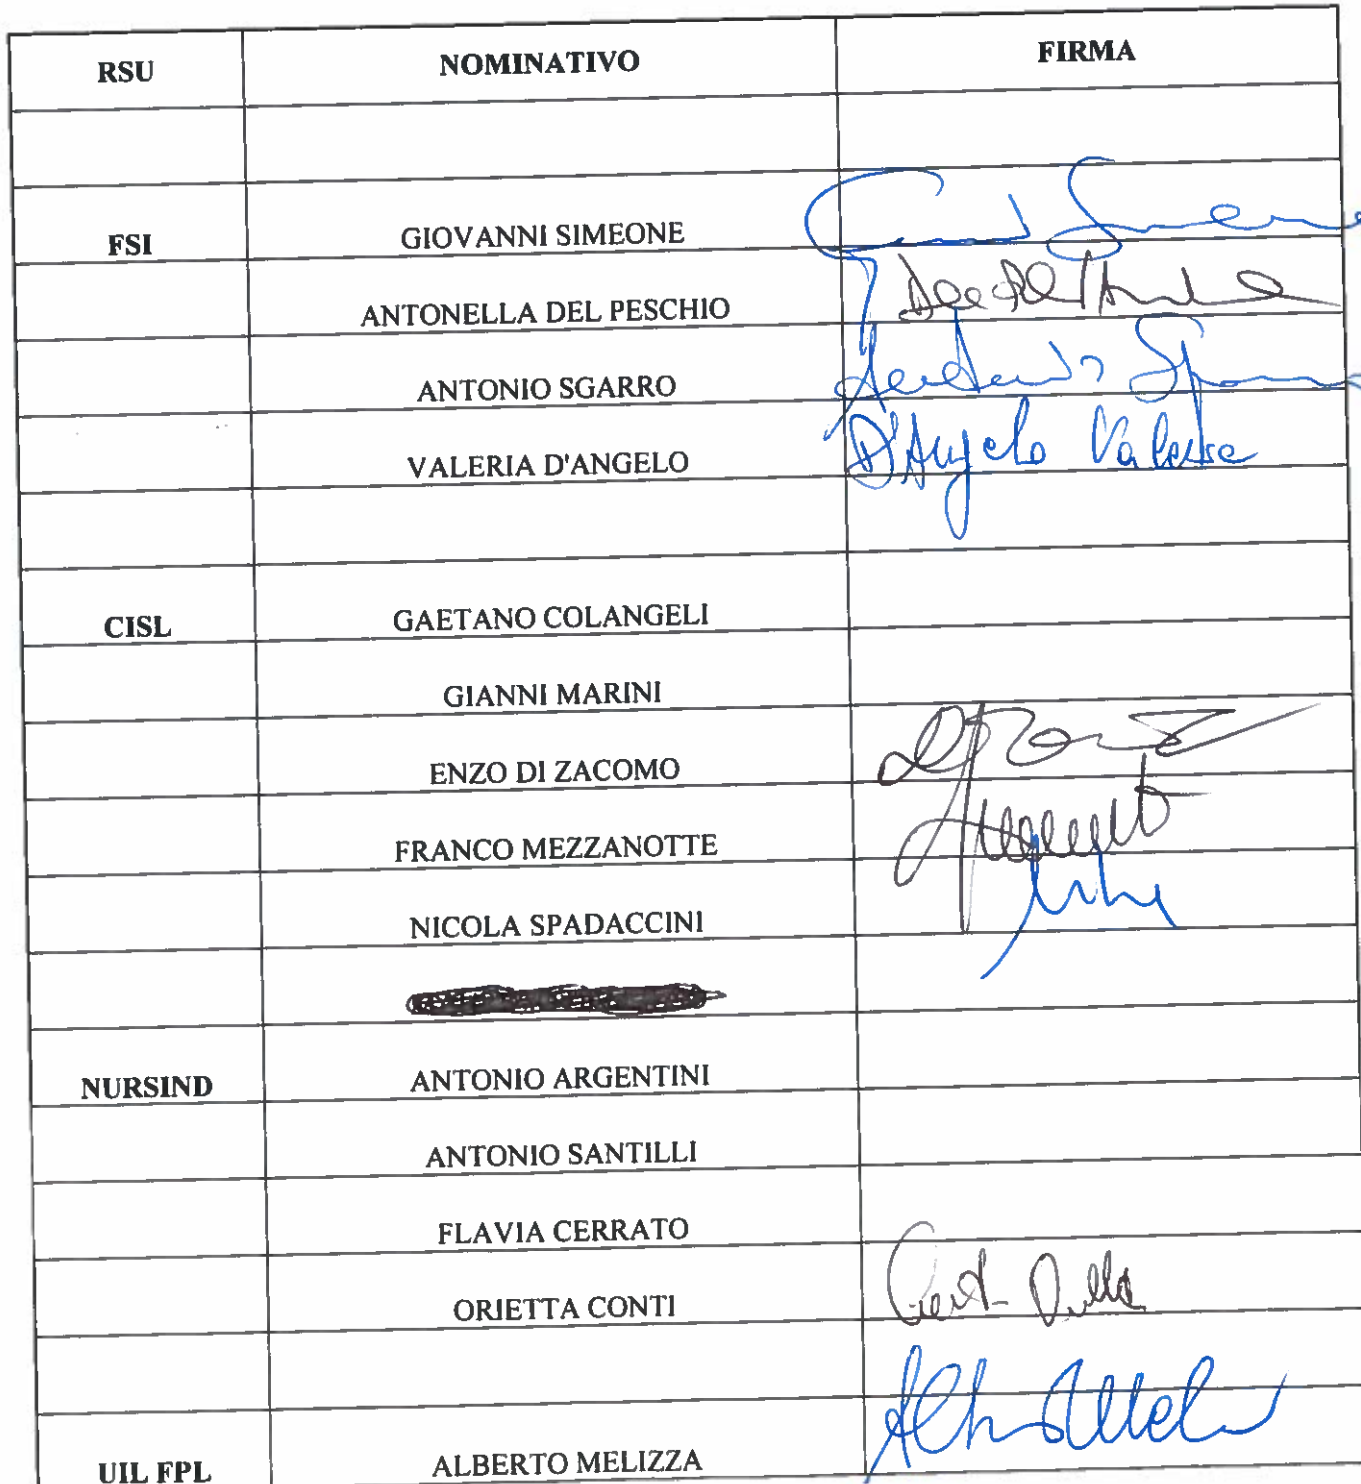 RSU NOMINATIVO FIRMA
FSI GIOVANNI SIMEONE
ANTONELLA DEL PESCHIO
ANTONIO SGARRO
VALERIA D'ANGELO D'Angelo Valeria
CISL GAETANO COLANGELI
GIANNI MARINI
ENZO DI ZACOMO
FRANCO MEZZANOTTE
NICOLA SPADACCINI
NURSIND ANTONIO ARGENTINI
ANTONIO SANTILLI
FLAVIA CERRATO
ORIETTA CONTI
UIL FPL ALBERTO MELIZZA